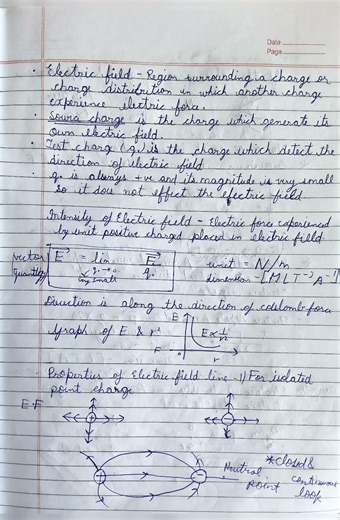 Date
Page
• Electric field - Region surrounding a charge or
charge distribution in which another charge
experience electric force.
• Source charge is the charge which generate its
own electric field.
• Test charge (q₀) is the charge which detect the
direction of electric field
• q₀ is always +ve and its magnitude is very small
so it does not effect the electric field
Intensity of Electric field - Electric force experienced
by unit positive charged placed in electric field.
vector quantity
E = lim F
q₀→0 q₀
unit = N/m
dimension = [M L T⁻³ A⁻¹]
Direction is along the direction of coulomb force
Graph of E & r
E
E ∝ 1/r²
r
• Properties of Electric field line - 1) For isolated
point charge
E.F
+
-
+
-
Neutral
point
*closed &
continuous
loop